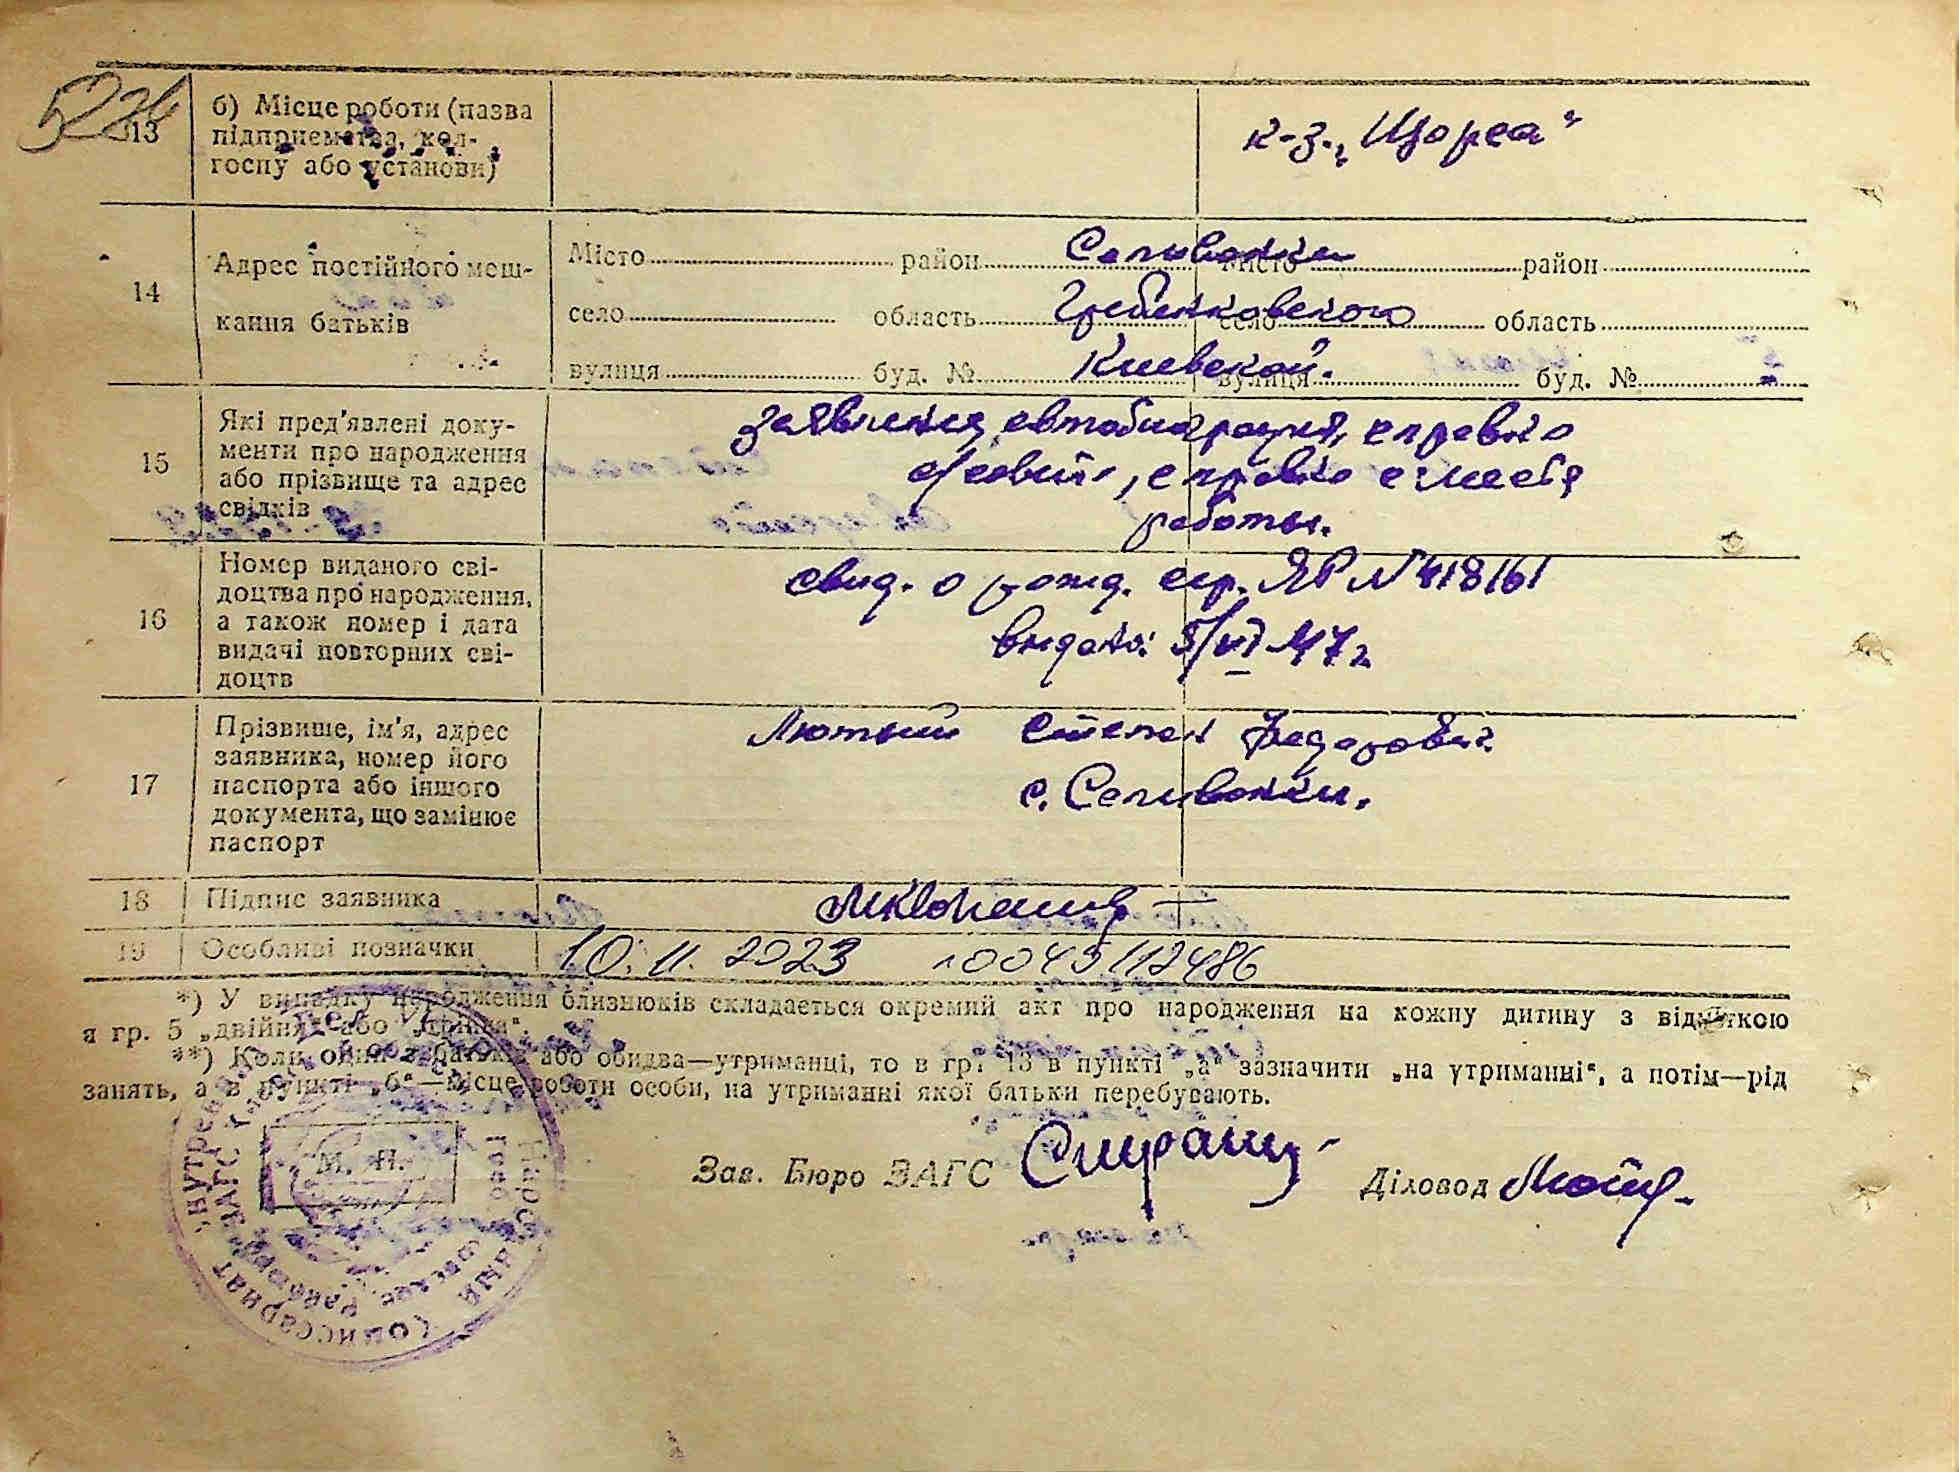 522
13
б) Місце роботи (назва
підприємства, кол-
госпу або установи)
к-з. „Щорса"
14
Адрес постійного меш-
кання батьків
Місто район Селиванки Місто район
село область Гребенковского село область
вулиця буд. № Киевской. вулиця буд. №
15
Які пред'явлені доку-
менти про народження
або прізвище та адрес
свідків
заявление, автобиография, справка
справка с места
работы.
16
Номер виданого сві-
доцтва про народження,
а також номер і дата
видачі повторних сві-
доцтв
свид. о рожд. сер. ЯР N 418161
выдано: 5/VI 47 г
17
Прізвище, ім'я, адрес
заявника, номер його
паспорта або іншого
документа, що замінює
паспорт
Лютый Степан Федорович
с. Селиванки.
18
Підпис заявника
19
Особливі позначки
10.11.2023 10045112486
*) У випадку народження близнюків складається окремий акт про народження на кожну дитину з відміткою
я гр. 5 „двійня" або „трійня".
**) Коли один з батьків або обидва—утриманці, то в гр. 13 в пункті „а" зазначити „на утриманні", а потім—рід
занять, а в пункті „б"—місце роботи особи, на утриманні якої батьки перебувають.
М. П.
Зав. Бюро ЗАГС
Діловод